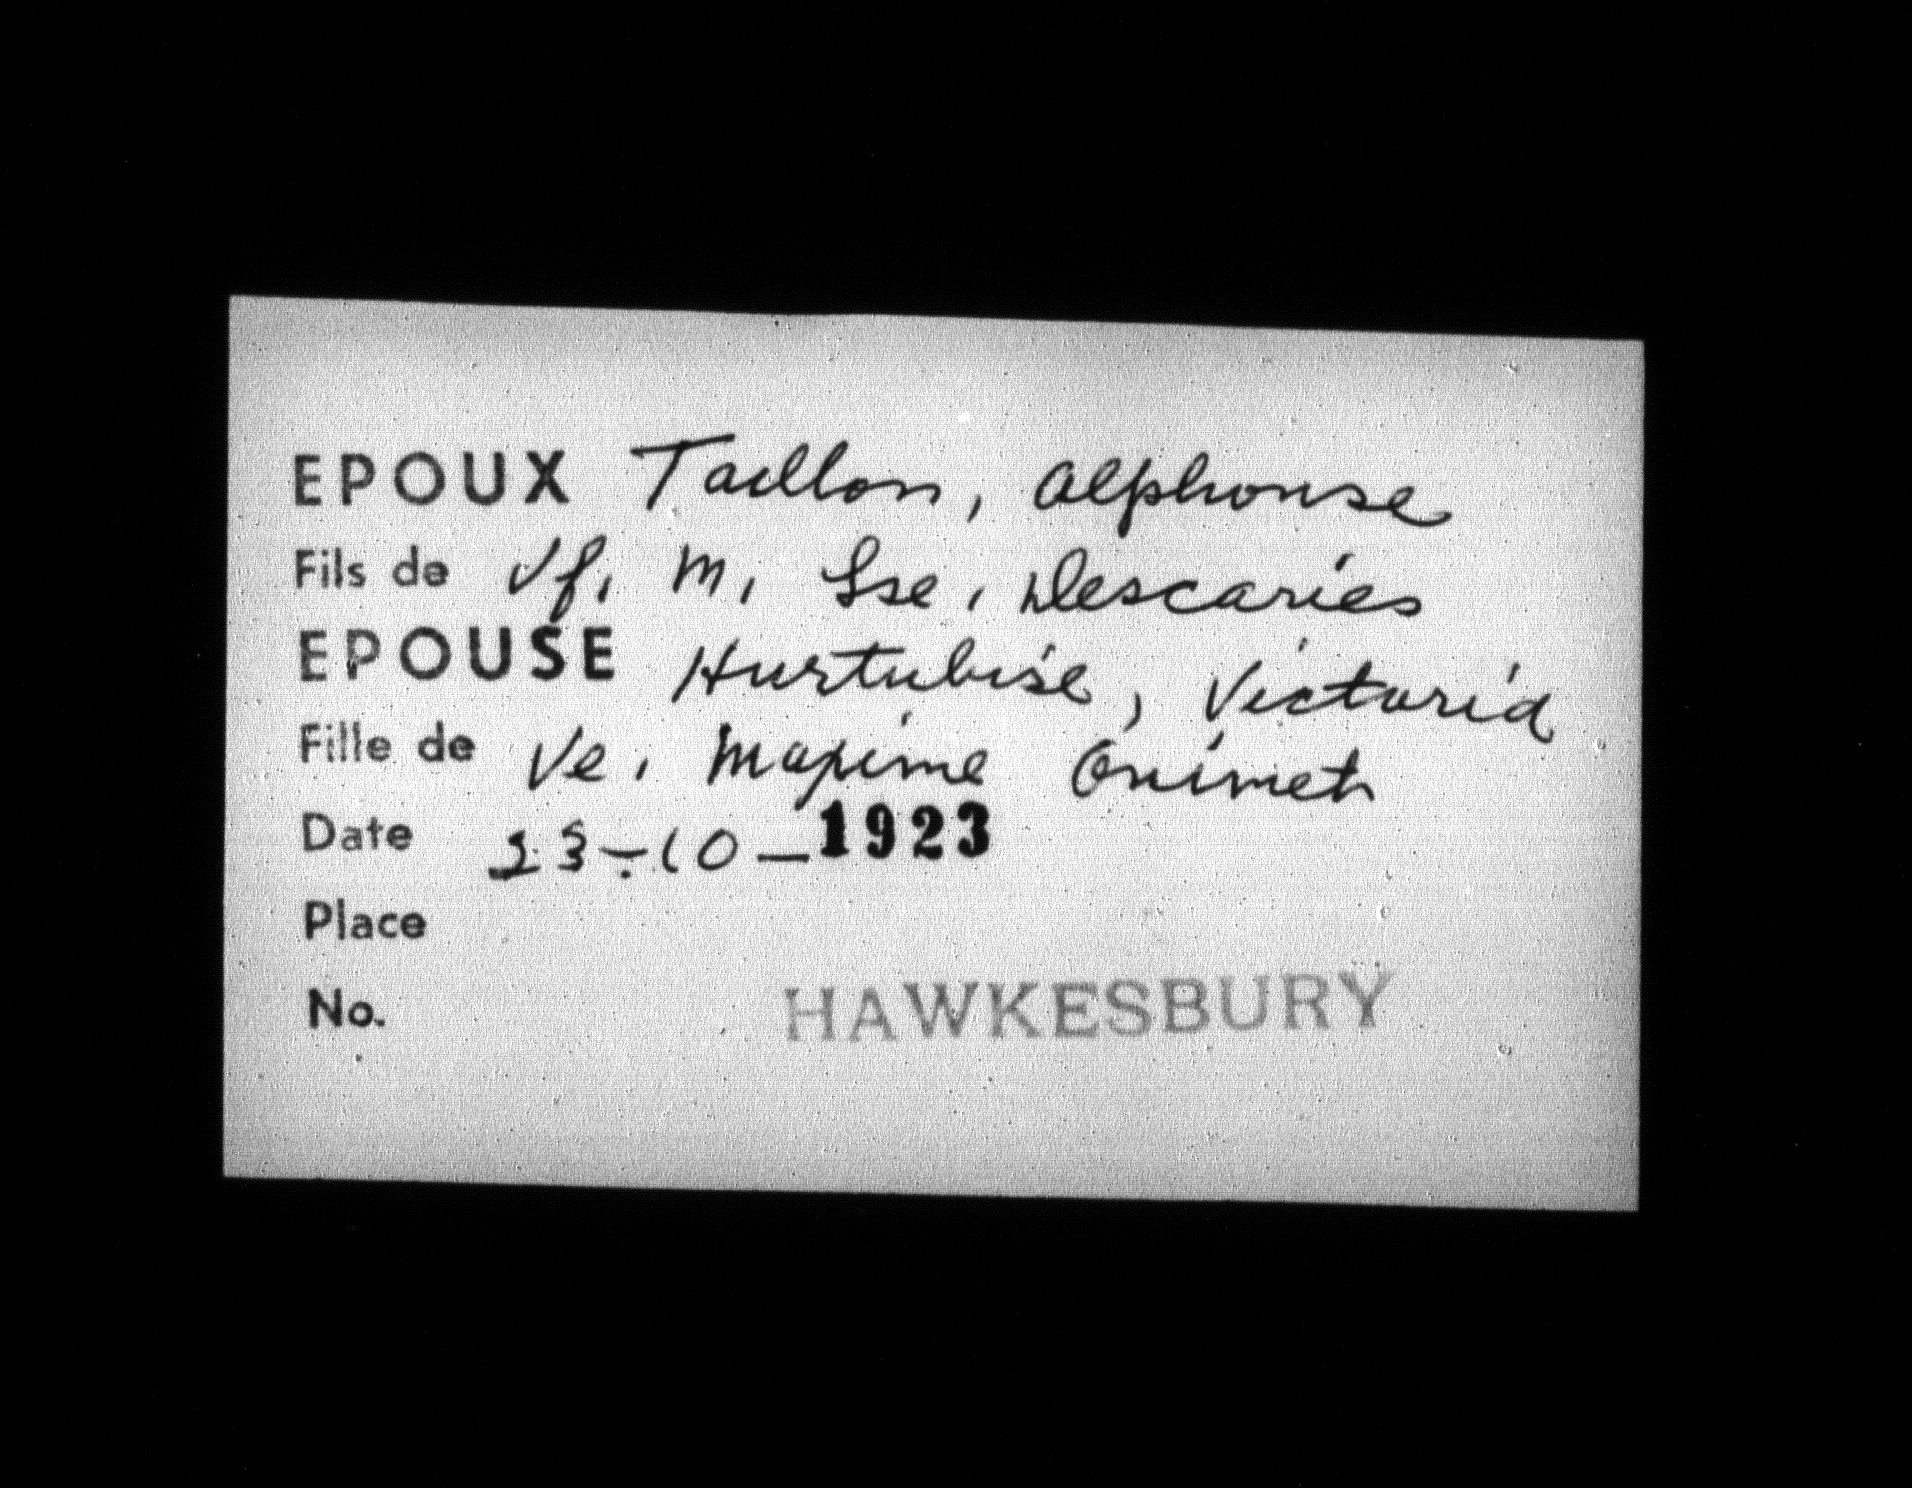 EPOUX Taillon, Alphonse
Fils de Vf. M. Lse. Descaries
EPOUSE Hurtubise, Victoria
Fille de Ve. Maxime Ouimet
Date 23-10-1923
Place
No.
HAWKESBURY